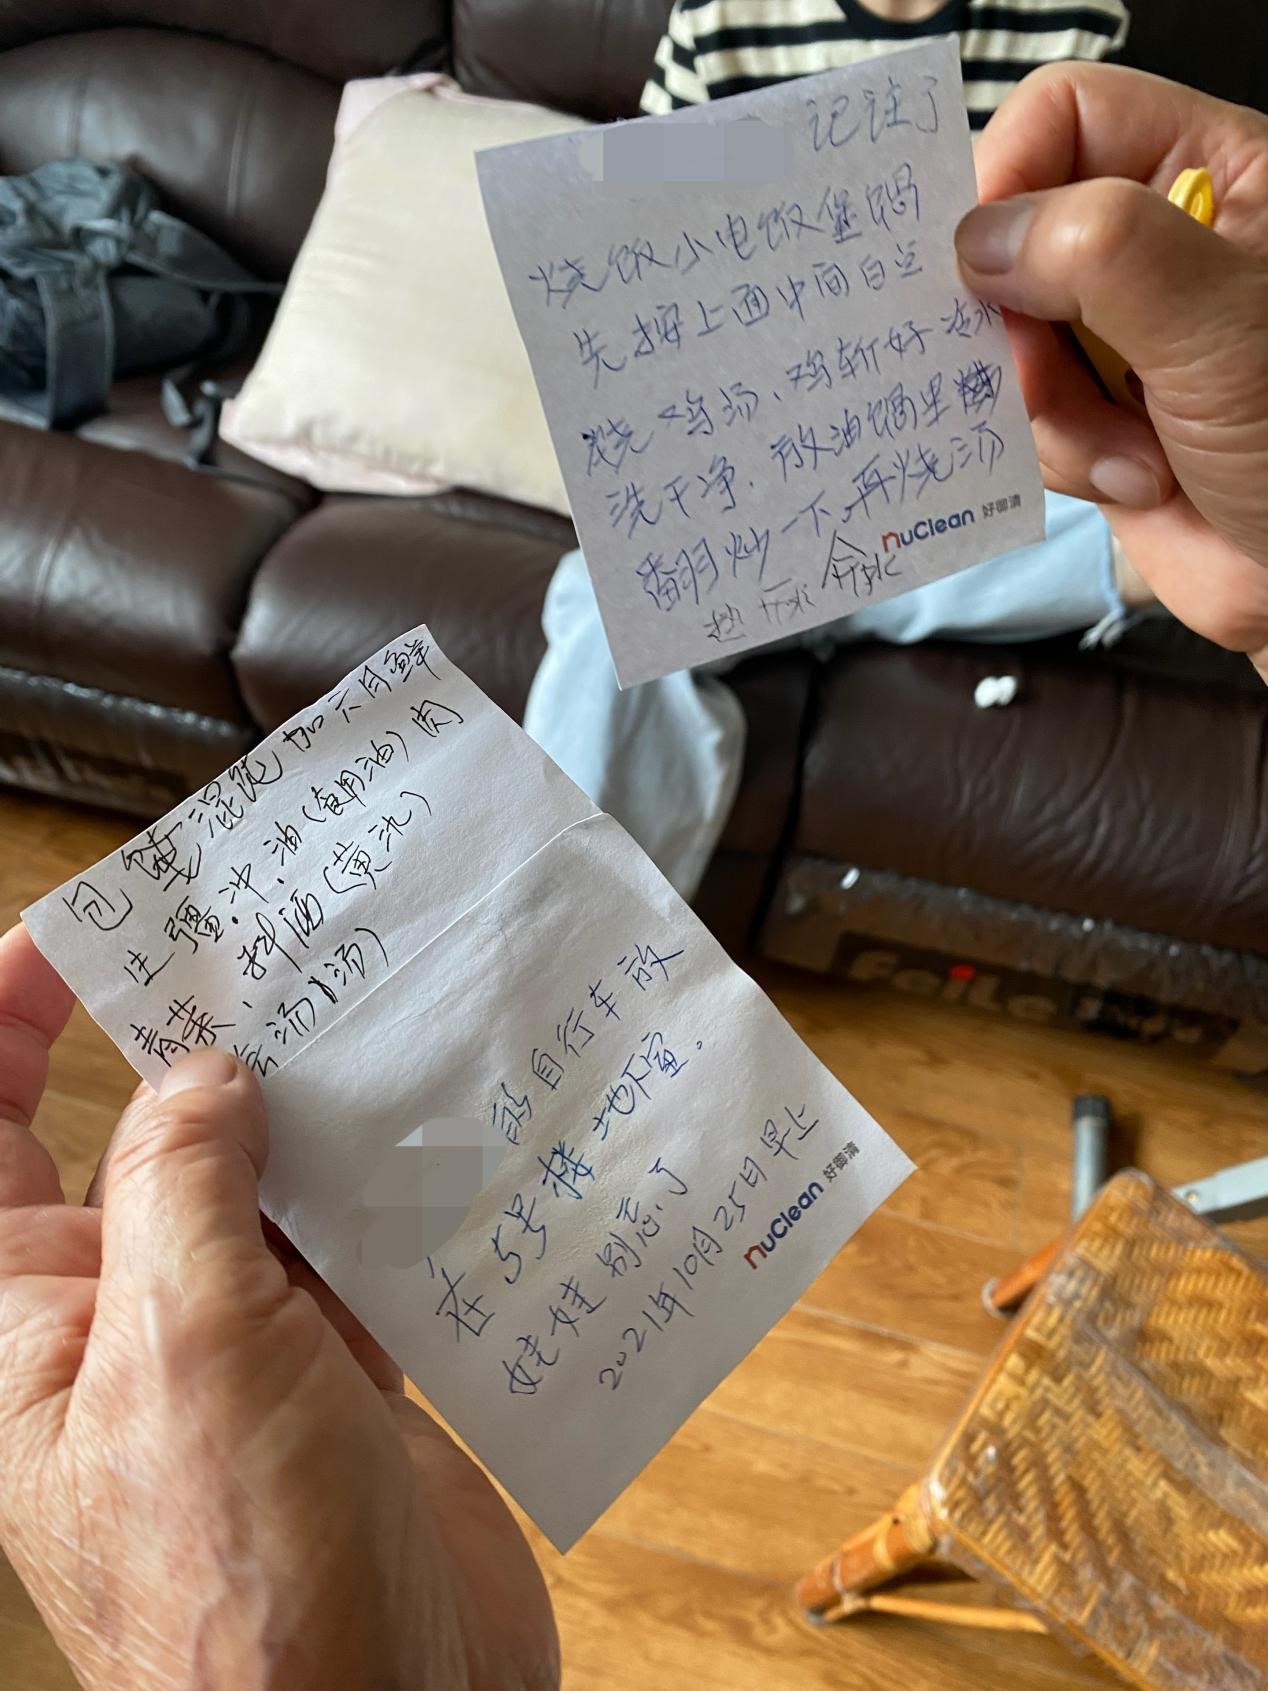 记注了
烧饭小电饭堡锅
先按上面中间白点
烧鸡汤、鸡斩好冷水
洗干净.放油锅里
翻炒一下,再烧汤
nuClean 好御清
包馄混饨加六月鲜
生疆.冲.油(食用油)肉
青菜、料酒(黄氿)
汤汤)
的自行车放
在5号楼地下室。
娃娃别忘了
2021年10月25日早上
nuClean 好御清
FeiLe